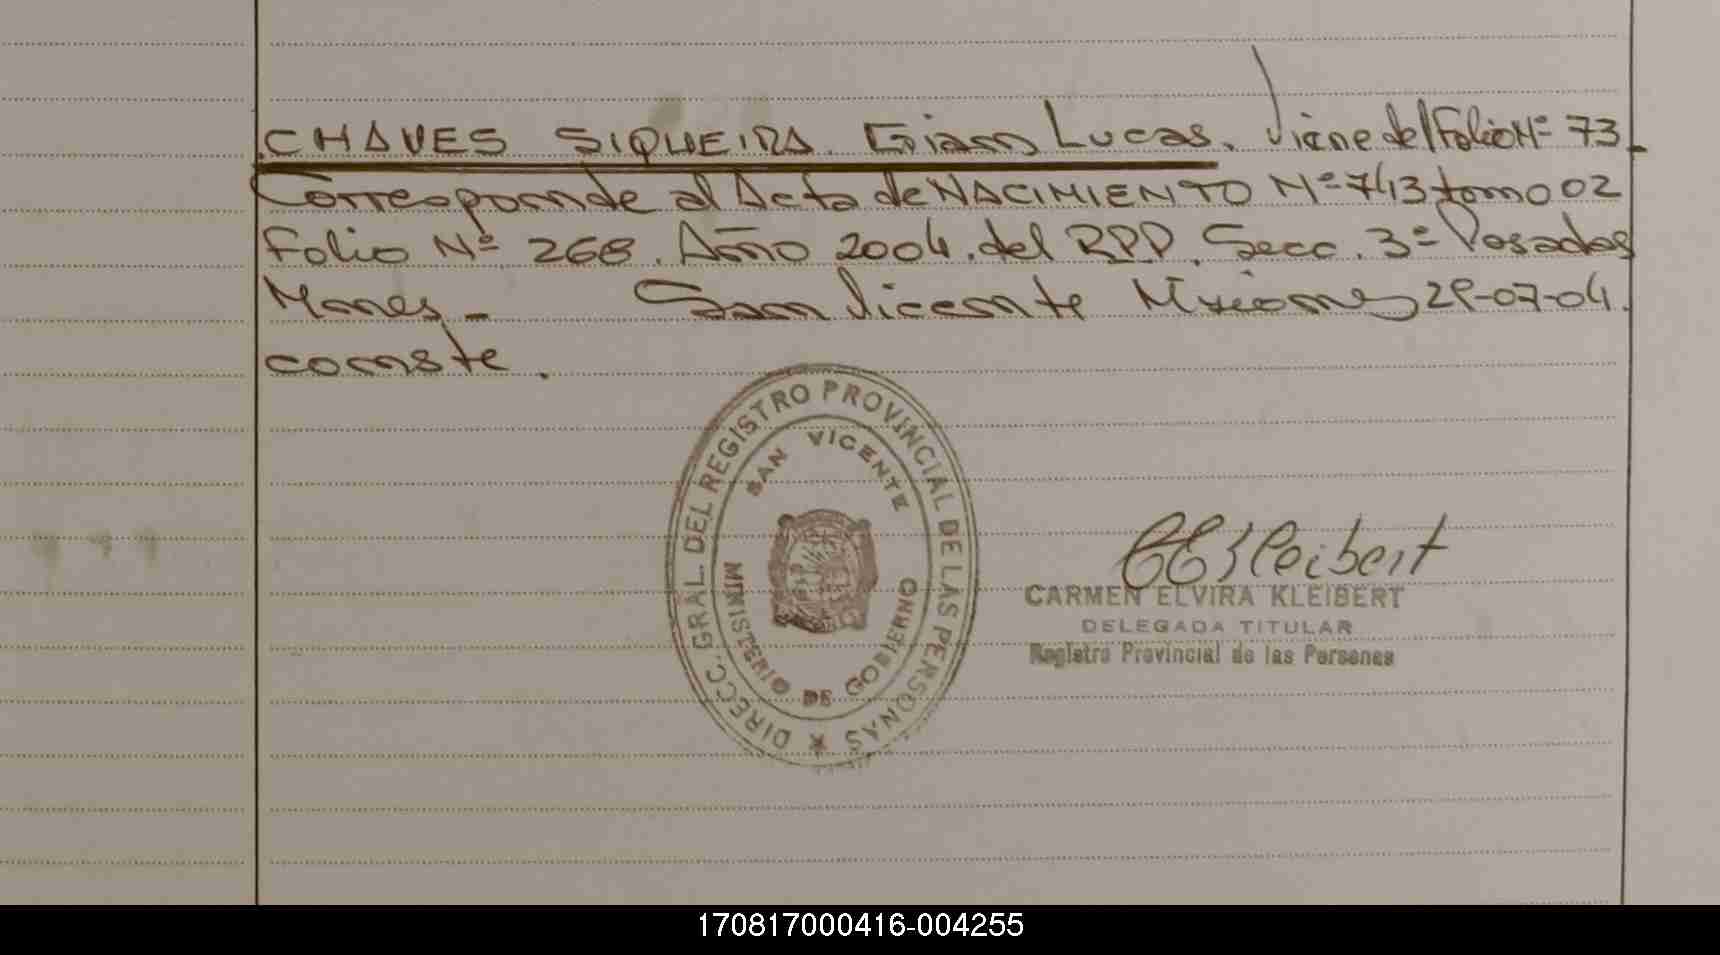 CHAVES SIQUEIRA Gian Lucas. Viene del Folio Nº 73_
Corresponde al Acta de NACIMIENTO Nº 743 tomo 02
Folio Nº 268. Año 2004. del RPP. Secc. 3º Posadas
Mones_ San Vicente Misiones 29-07-04.
conste.
DIRECC. GRAL. DEL REGISTRO PROVINCIAL DE LAS PERSONAS
SAN VICENTE
MINISTERIO DE GOBIERNO
CARMEN ELVIRA KLEIBERT
DELEGADA TITULAR
Registro Provincial de las Personas
170817000416-004255